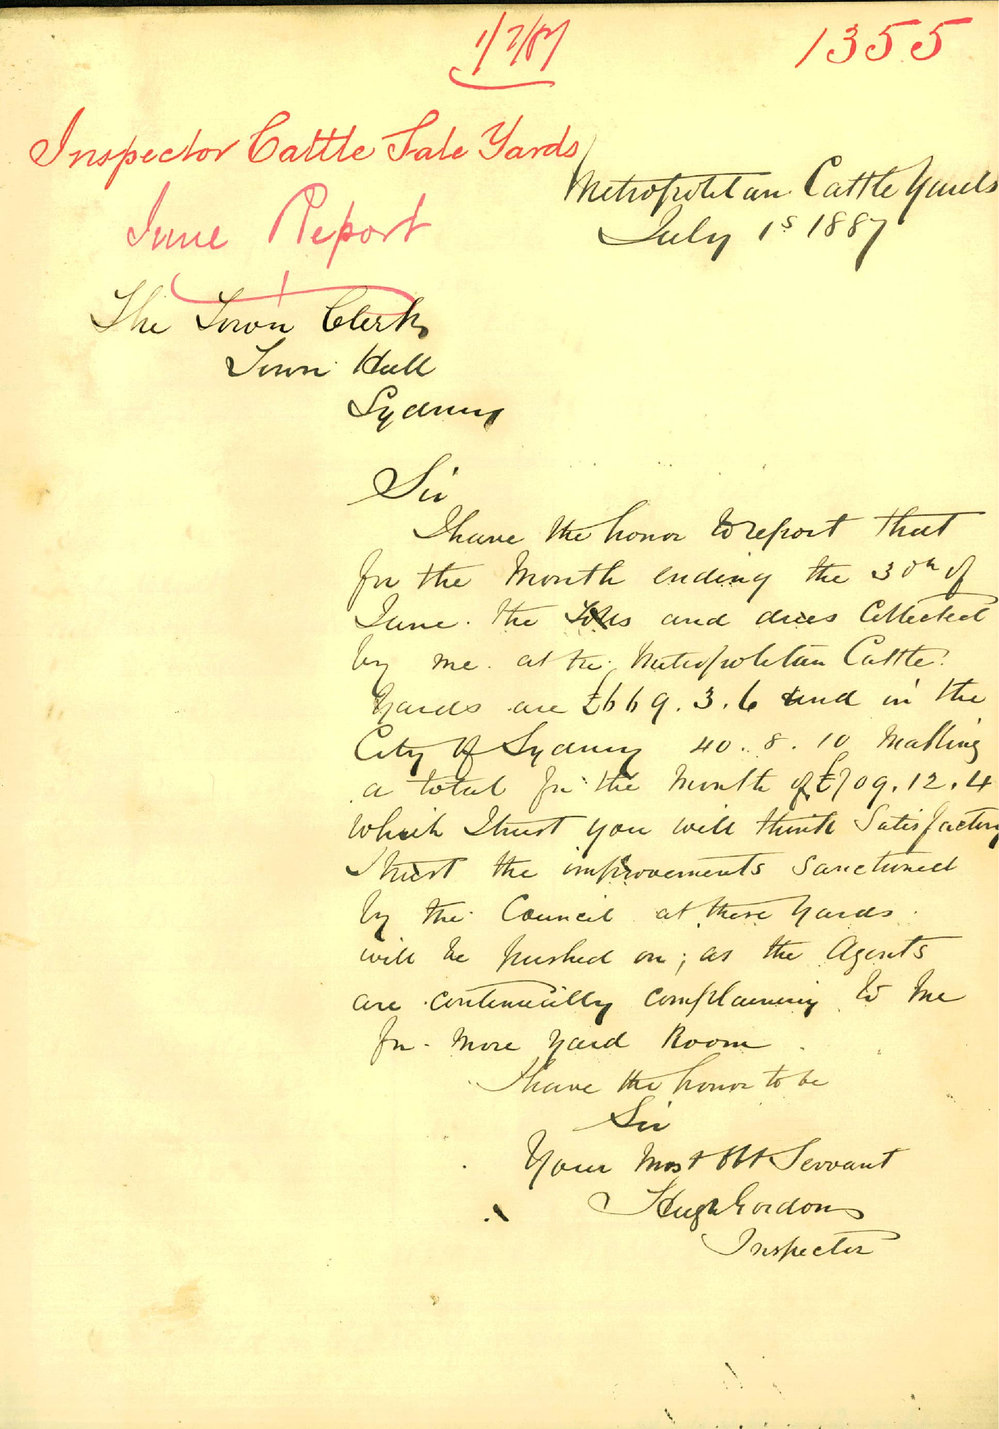 1/7/87
1355
Inspector Cattle Sale Yards
June Report
Metropolitan Cattle Yards
July 1s 1887
The Town Clerk
Town Hall
Sydney
Sir
I have the honor to report that
for the Month ending the 30th of
June. the Tolls and dues Collected
by me. at the. Metropolitan Cattle.
Yards are £669.3.6 and in the
City of Sydney 40..8.10 Making
a total for the Month of £709.12.4
Which I trust you will think Satisfactory
I trust the improvements sanctioned
by the Council at these Yards.
will be pushed on; as the Agents
are continually complaining to Me
for More Yard Room.
I have the honor to be
Sir
Your Most Obt Servant
Hugh Gordon
Inspector